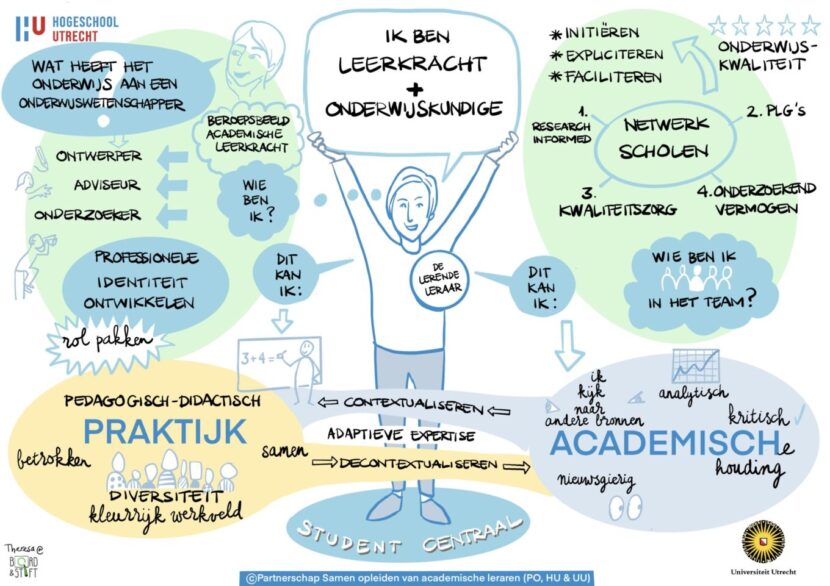 HU HOGESCHOOL
UTRECHT
WAT HEEFT HET
ONDERWIJS AAN EEN
ONDERWIJSWETENSCHAPPER
?
ONTWERPER
ADVISEUR
ONDERZOEKER
PROFESSIONELE
IDENTITEIT
ONTWIKKELEN
rol pakken
BEROEPSBEELD
ACADEMISCHE
LEERKRACHT
WIE
BEN
IK?
IK BEN
LEERKRACHT
+
ONDERWIJSKUNDIGE
DE
LERENDE
LERAAR
DIT
KAN
IK:
DIT
KAN
IK:
* INITIËREN
* EXPLICITEREN
* FACILITEREN
ONDERWIJS-
KWALITEIT
1.
RESEARCH
INFORMED
2. PLG'S
NETWERK
SCHOLEN
3.
KWALITEITSZORG
4. ONDERZOEKEND
VERMOGEN
WIE BEN IK
IN HET TEAM?
3+4=
PEDAGOGISCH-DIDACTISCH
PRAKTIJK
betrokken
samen
DIVERSITEIT
kleurrijk werkveld
CONTEXTUALISEREN
ADAPTIEVE EXPERTISE
DECONTEXTUALISEREN
ik
kijk
naar
andere bronnen
analytisch
kritisch
ACADEMISCHe
houding
nieuwsgierig
STUDENT CENTRAAL
Theresa @
BOORD
& STIFT
Universiteit Utrecht
©Partnerschap Samen opleiden van academische leraren (PO, HU & UU)